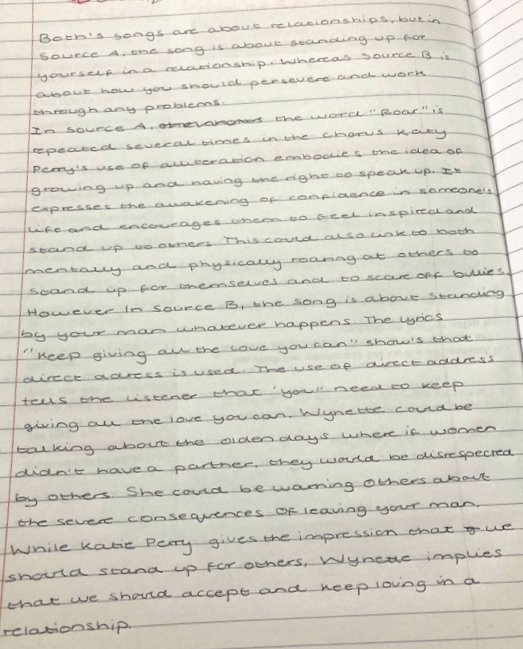 Both's songs are about relationships, but in
Source A, the song is about standing up for
yourself in a relationship. Whereas Source B is
about how you should persevere and work
through any problems.
In Source A, the word "Roar" is
repeated several times in the chorus. Katy
Perry's use of alliteration embodies the idea of
growing up and having the right to speak up. It
expresses the awakening of confidence in someone's
life and encourages them to feel inspired and
stand up to others. This could also link to both
mentally and physically roaring at others to
stand up for themselves and to scare off bullies.
However In Source B, the song is about standing
by your man whatever happens. The lyrics
"Keep giving all the love you can" show's that
direct adress is used. The use of direct address
tells the listener that 'you" need to keep
giving all the love you can. Wynette could be
talking about the olden days where if women
didn't have a partner, they would be disrespected
by others. She could be warning others about
the severe consequences of leaving your man.
While Katie Perry gives the impression that we
should stand up for others, Wynette implies
that we should accept and keep loving in a
relationship.